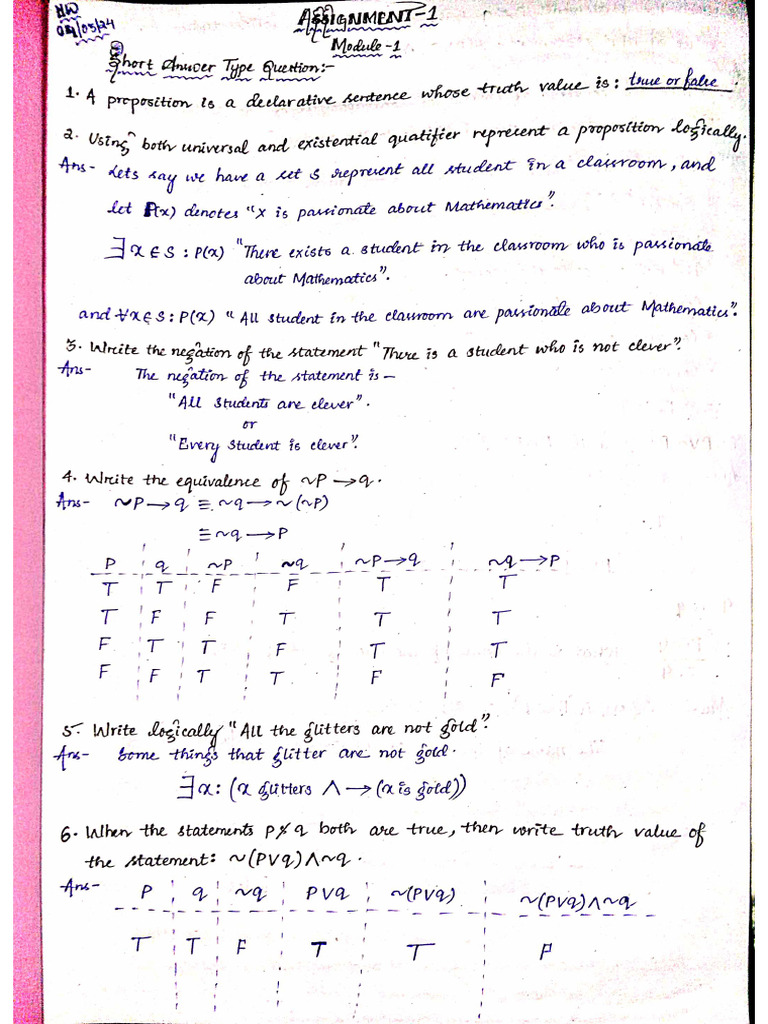 HW
04/03/24
ASSIGNMENT-1
Module-1
Short Answer Type Question:-
1. A proposition is a declarative sentence whose truth value is: true or false.
2. Using both universal and existential quatifier represent a proposition logically.
Ans- Lets say we have a set S represent all student in a classroom, and
let P(x) denotes "x is passionate about Mathematics".
∃x∈S : P(x) "There exists a student in the classroom who is passionate
about Mathematics".
and ∀x∈S : P(x) "All student in the classroom are passionate about Mathematics".
3. Write the negation of the statement "There is a student who is not clever".
Ans- The negation of the statement is -
"All students are clever".
or
"Every student is clever".
4. Write the equivalence of ~P→q.
Ans- ~P→q ≡ ~q→~(~P)
≡ ~q→P
P q ~P ~q ~P→q ~q→P
T T F F T T
T F F T T T
F T T F T T
F F T T F F
5. Write logically "All the glitters are not gold".
Ans- Some things that glitter are not gold.
∃x: (x glitters ∧ → (x is gold))
6. When the statements P & q both are true, then write truth value of
the statement: ~(P∨q)∧~q.
Ans- P q ~q P∨q ~(P∨q) ~(P∨q)∧~q
T T F T T F